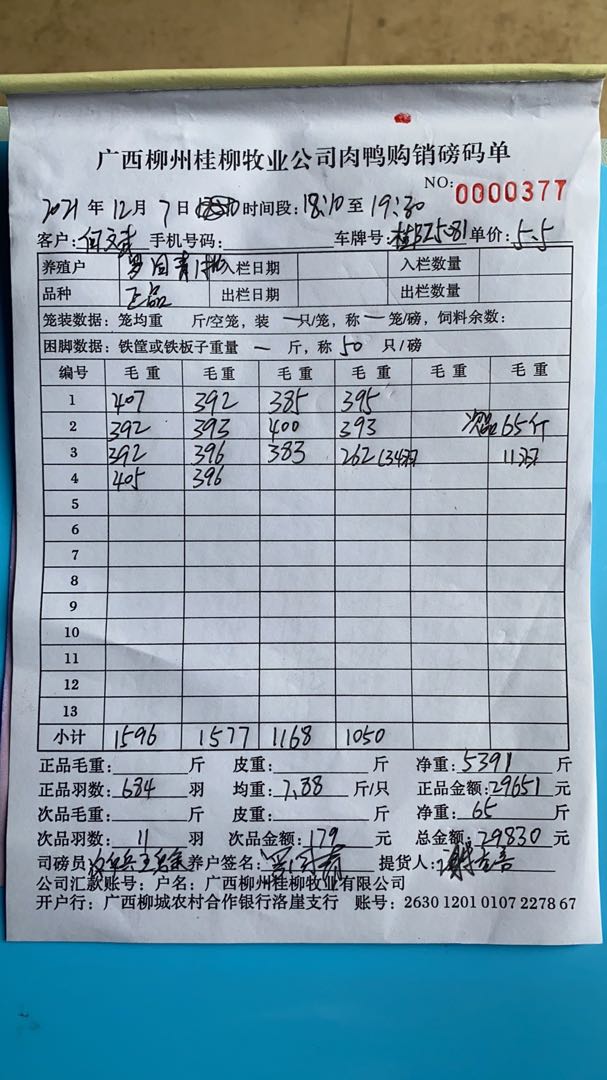 广西柳州桂柳牧业公司肉鸭购销磅码单
NO: 0000377
2021年12月7日 时间段: 18:10至19:30
客户: 何文武 手机号码: 车牌号: 桂BZ5-81 单价: 5.5
养殖户 罗国青 入栏日期 入栏数量
品种 正品 出栏日期 出栏数量
笼装数据: 笼均重 斤/空笼, 装 一 只/笼, 称 一 笼/磅, 饲料余数:
困脚数据: 铁筐或铁板子重量 一 斤, 称 50 只/磅
编号 毛重 毛重 毛重 毛重 毛重 毛重
1 407 392 385 395
2 392 393 400 393 次品65斤
3 392 396 383 262(34羽 11羽
4 405 396
5
6
7
8
9
10
11
12
13
小计 1596 1577 1168 1050
正品毛重: 斤 皮重: 斤 净重: 5391 斤
正品羽数: 684 羽 均重: 7.88 斤/只 正品金额: 29651 元
次品毛重: 斤 皮重: 斤 净重: 65 斤
次品羽数: 11 羽 次品金额: 179 元 总金额: 29830 元
司磅员 养户签名: 罗国青 提货人:
公司汇款账号: 户名: 广西柳州桂柳牧业有限公司
开户行: 广西柳城农村合作银行洛崖支行 账号: 2630 1201 0107 2278 67